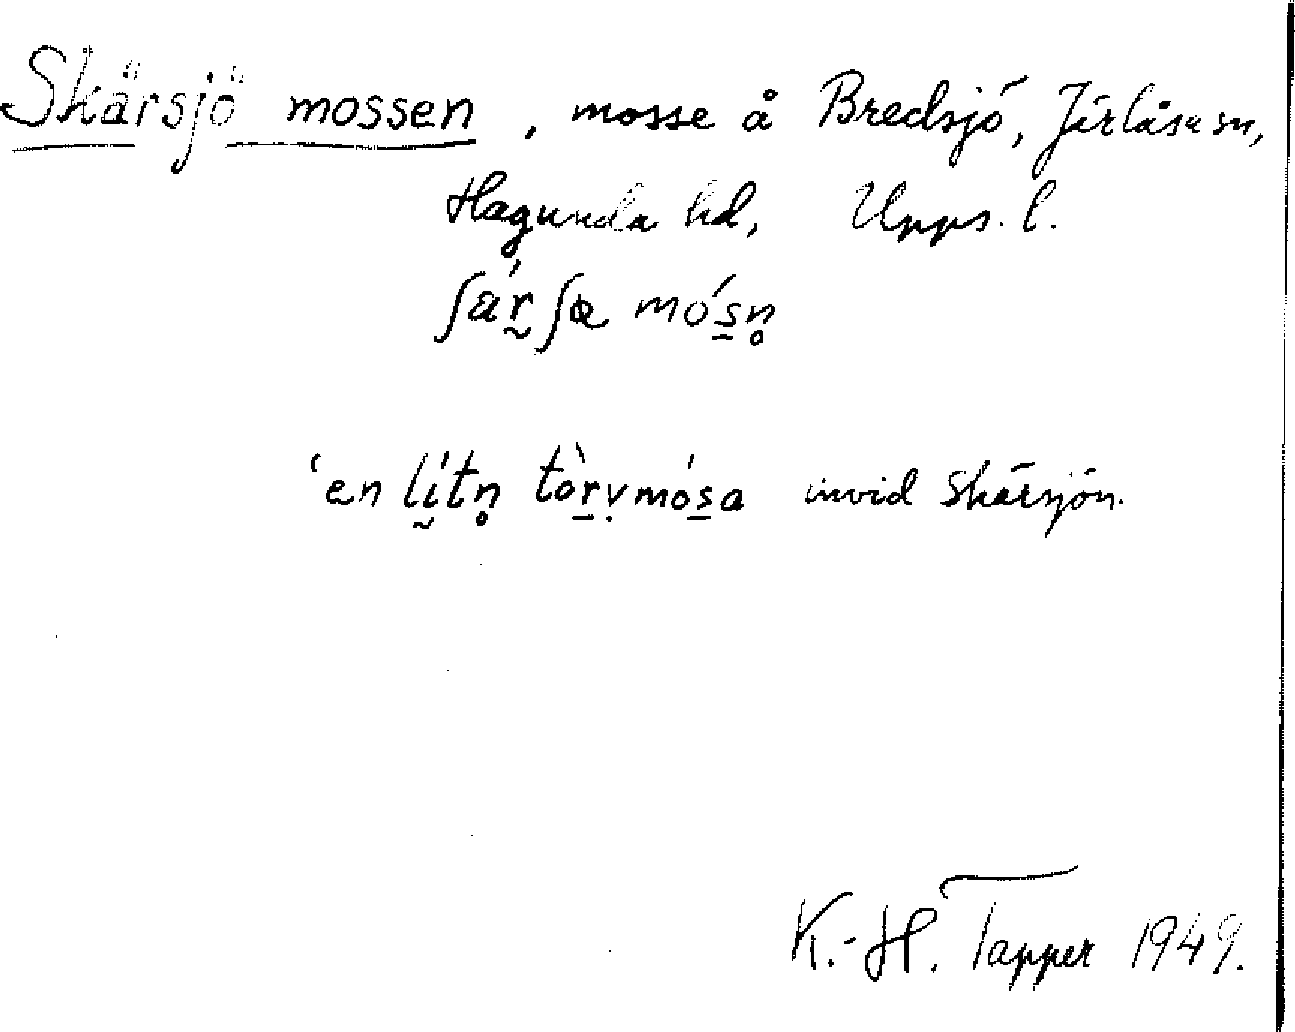 Skärsjö mossen, mosse å Bredsjö, Järlåsa sn,
Hagunda hd, Upps. l.
ʃä́r̰ʃœ mós̲n̥
'en lḭ́tn̥ tòr̲ṿmós̲a invid Skärsjön.
K.-H. Tapper 1949.